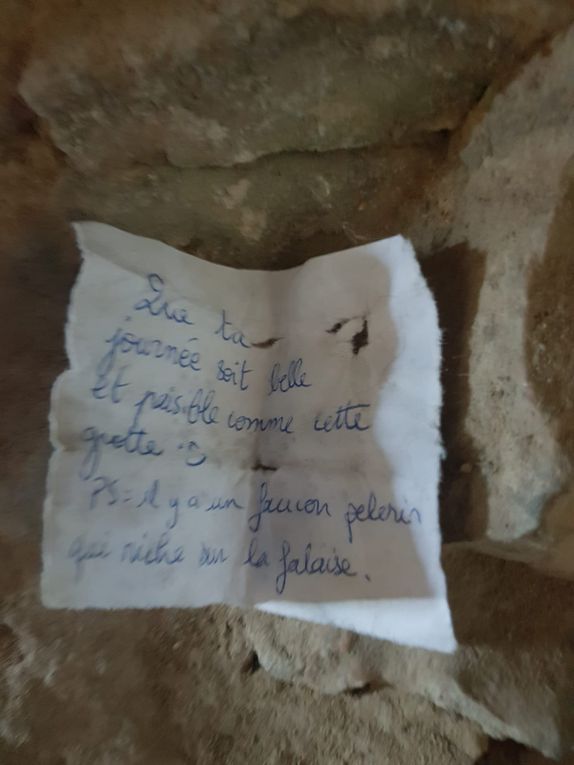 Que ta
journée soit belle
et paisible comme cette
grotte :)
PS = il y a un faucon pelerin
qui niche sur la falaise.